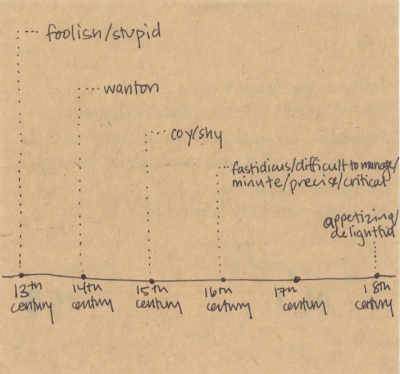 foolish/stupid
wanton
coy/shy
fastidious/difficult to manage/
minute/precise/critical
appetizing/
delightful
13th
century
14th
century
15th
century
16th
century
17th
century
18th
century